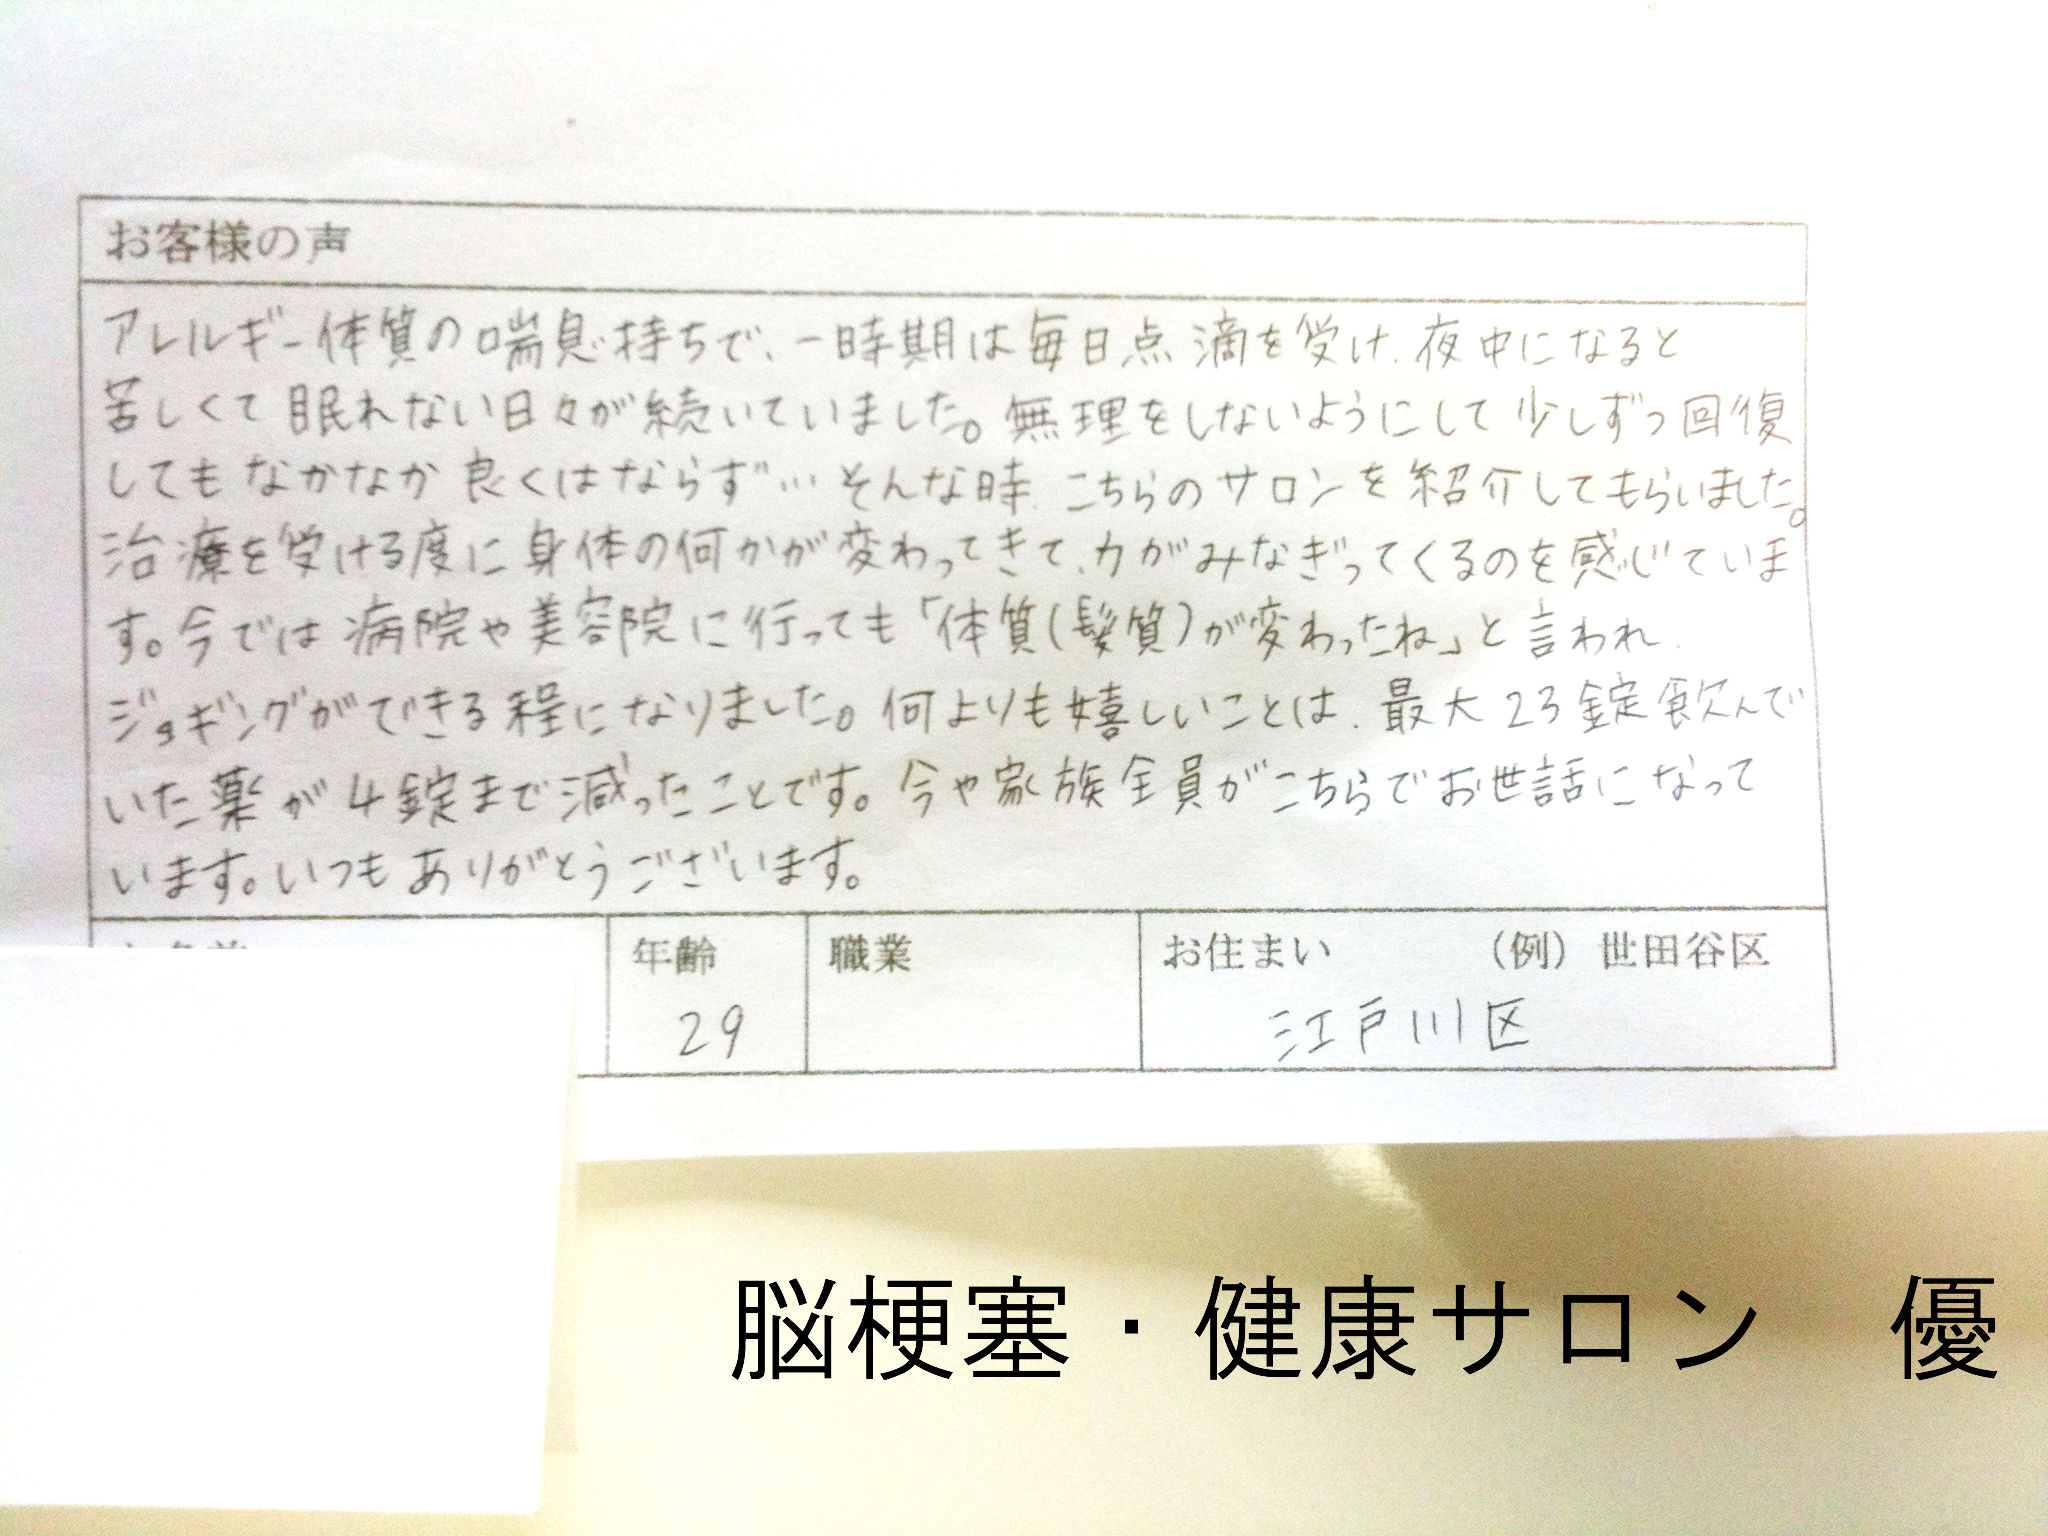 お客様の声
アレルギー体質の喘息持ちで、一時期は毎日点滴を受け、夜中になると
苦しくて眠れない日々が続いていました。無理をしないようにして少しずつ回復
してもなかなか良くはならず…そんな時、こちらのサロンを紹介してもらいました。
治療を受ける度に身体の何かが変わってきて、力がみなぎってくるのを感じていま
す。今では病院や美容院に行っても「体質(髪質)が変わったね」と言われ、
ジョギングができる程になりました。何よりも嬉しいことは、最大23錠飲んで
いた薬が4錠まで減ったことです。今や家族全員がこちらでお世話になって
います。いつもありがとうございます。
年齢 職業 お住まい (例)世田谷区
29 江戸川区
脳梗塞・健康サロン 優